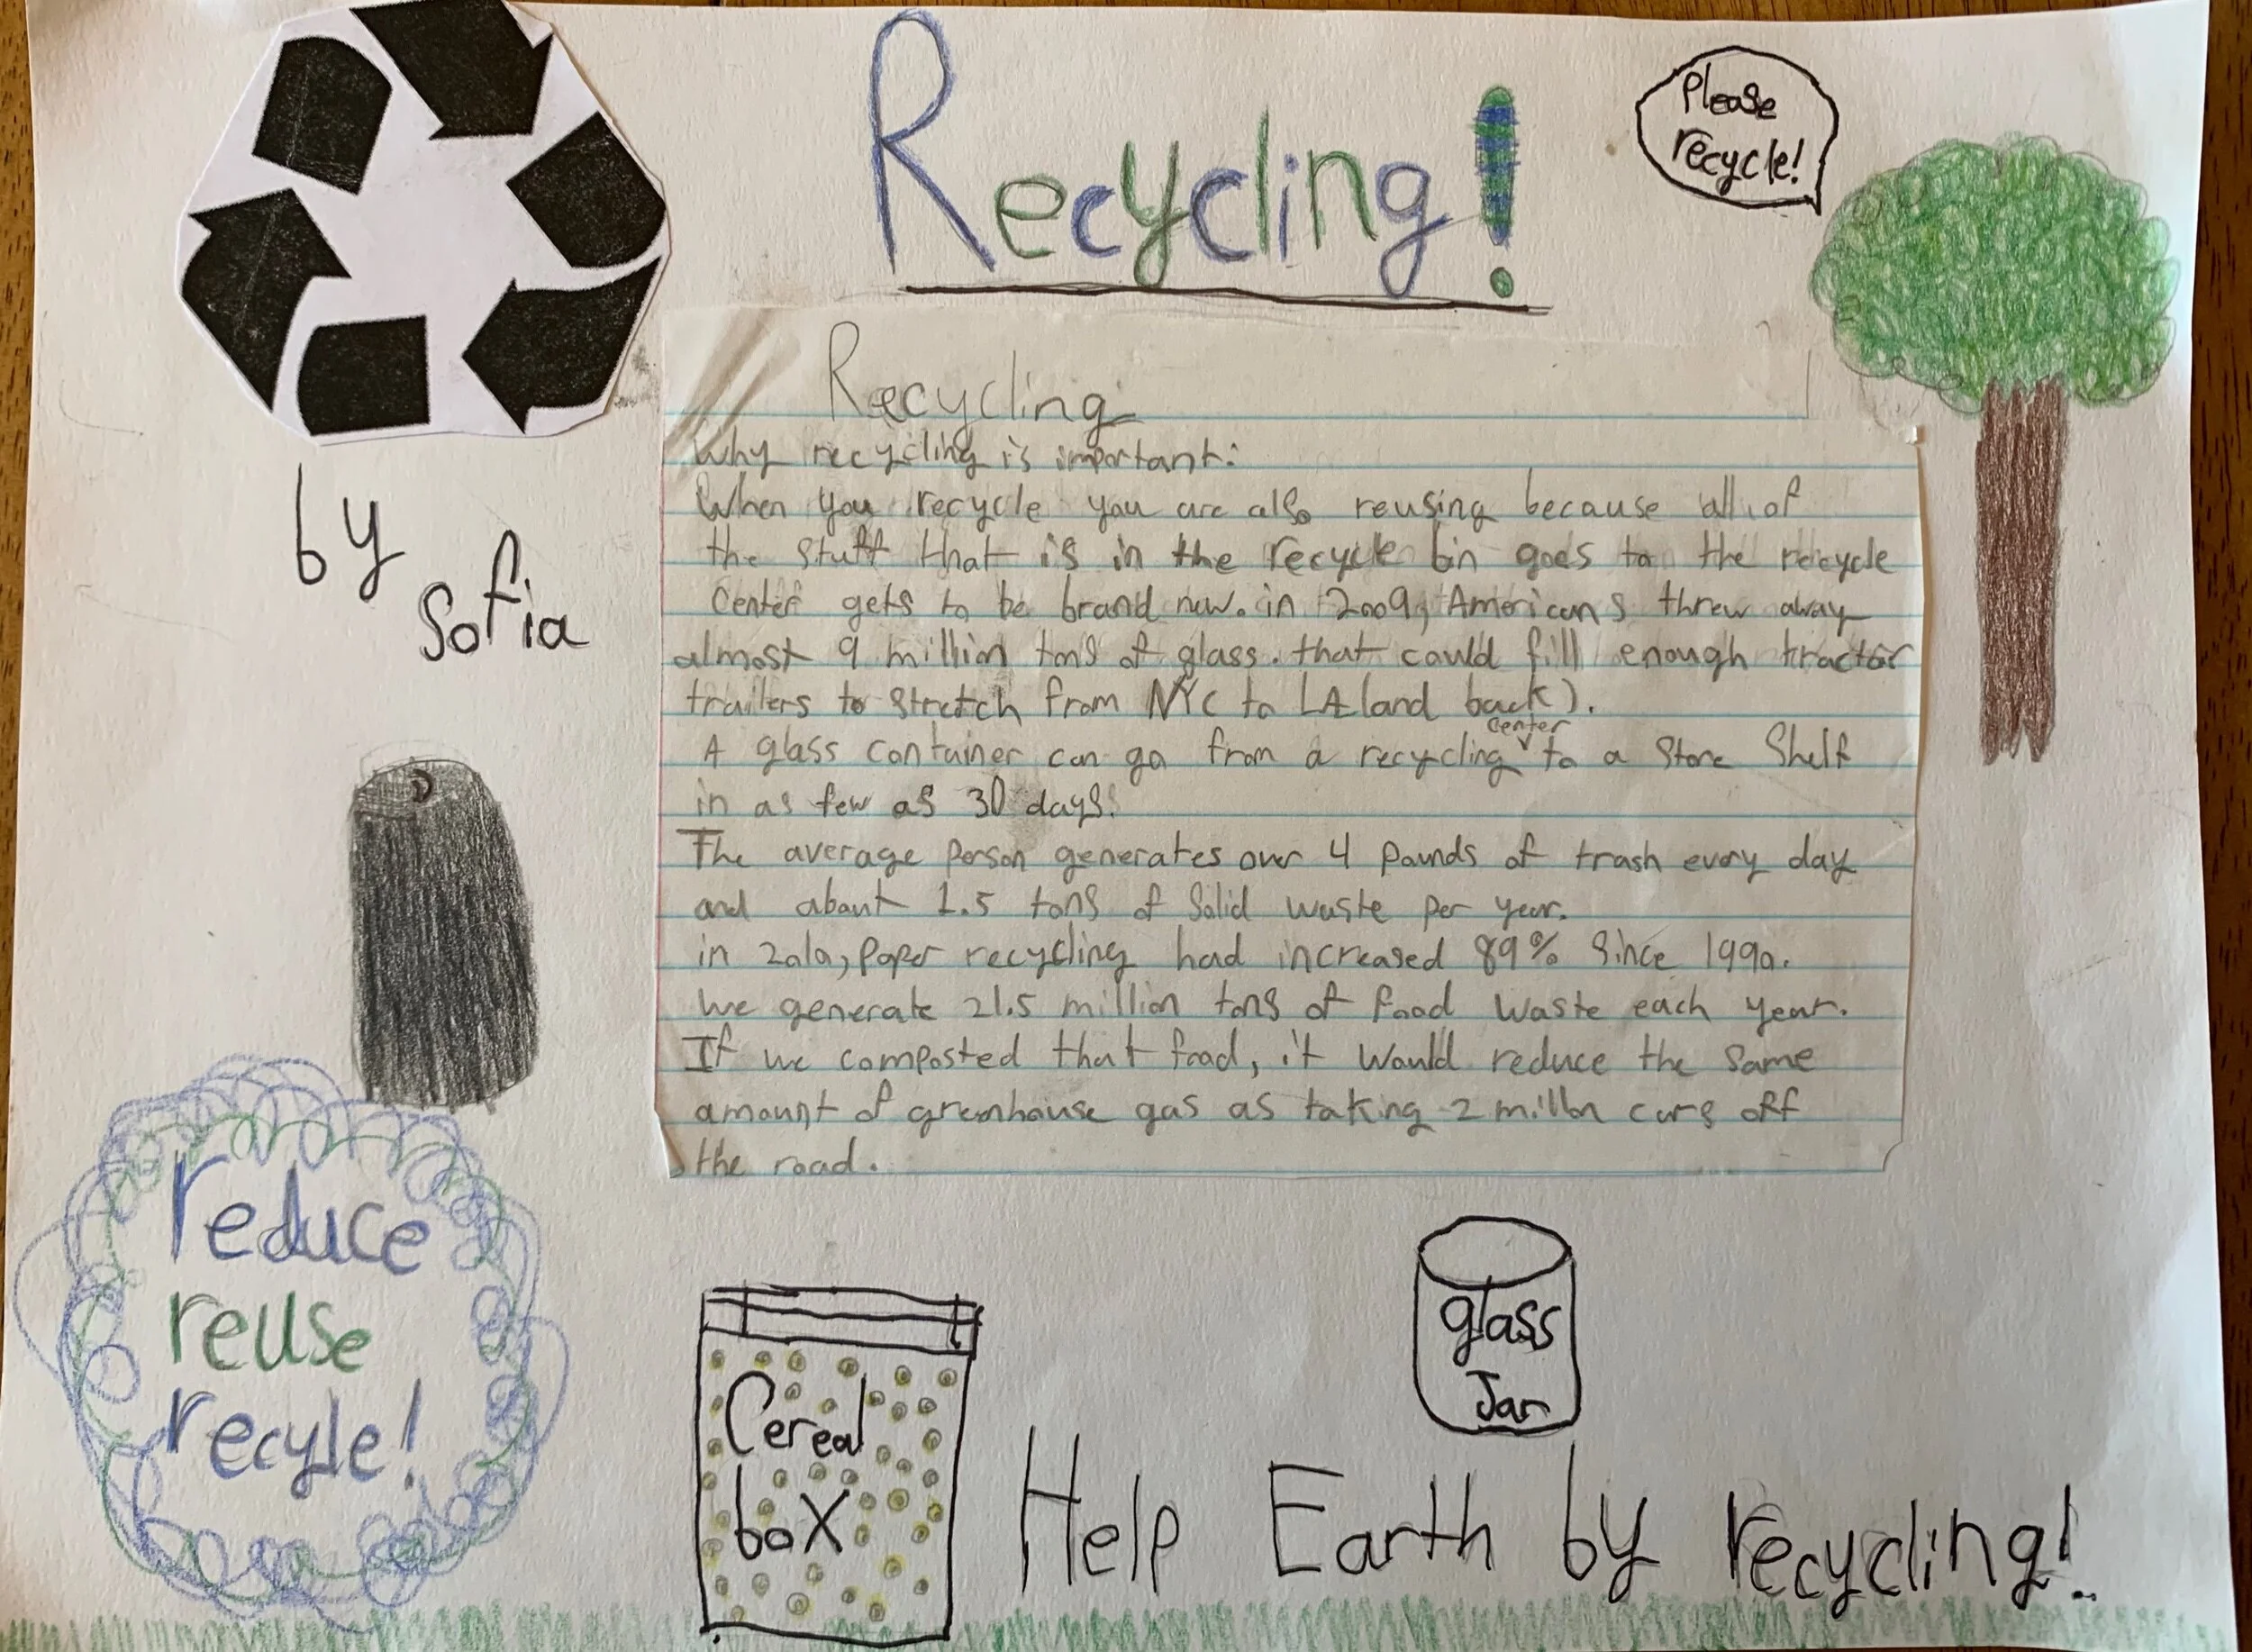 Recycling!
Please
recycle!
by
Sofia
Recycling
Why recycling is important:
When you recycle you are also reusing because all of
the stuff that is in the recycle bin goes to the recycle
center gets to be brand new. in 2009, Americans threw away
almost 9 million tons of glass. that could fill enough tractor
trailers to stretch from NYC to LA (and back).
A glass container can go from a recycling center to a store shelf
in as few as 30 days.
The average person generates over 4 pounds of trash every day
and about 1.5 tons of solid waste per year.
in 2010, paper recycling had increased 89% since 1990.
we generate 21.5 million tons of food waste each year.
If we composted that food, it would reduce the same
amount of greenhouse gas as taking 2 millon cars off
the road.
reduce
reuse
recyle!
Cereal
box
glass
Jar
Help Earth by recycling!